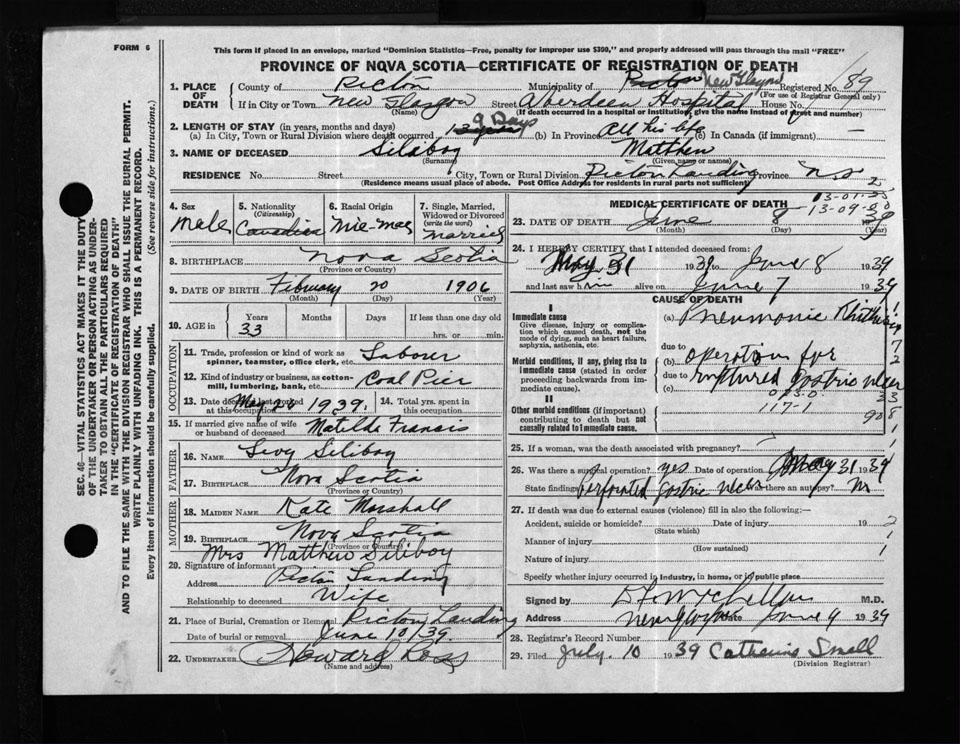 FORM 6
This form if placed in an envelope, marked "Dominion Statistics—Free, penalty for improper use $300," and properly addressed will pass through the mail "FREE"
PROVINCE OF NOVA SCOTIA—CERTIFICATE OF REGISTRATION OF DEATH
1. PLACE OF DEATH
County of Pictou Municipality of Pictou New Glasgow Registered No. 89
(For use of Registrar General only)
If in City or Town New Glasgow Street Aberdeen Hospital House No.
(Name) (If death occurred in a hospital or institution, give the name instead of street and number)
2. LENGTH OF STAY (in years, months and days)
(a) In City, Town or Rural Division where death occurred 9 Days (b) In Province all his life (c) In Canada (if immigrant) —
3. NAME OF DECEASED Siliboy Matthew
(Surname) (Given name or names)
RESIDENCE No. Street City, Town or Rural Division Pictou Landing Province N S
(Residence means usual place of abode. Post Office Address for residents in rural parts not sufficient)
4. Sex Male
5. Nationality (Citizenship) Canadian
6. Racial Origin Mic-mac
7. Single, Married, Widowed or Divorced (write the word) Married
8. BIRTHPLACE Nova Scotia
(Province or Country)
9. DATE OF BIRTH February 20 1906
(Month) (Day) (Year)
10. AGE in Years 33 Months Days If less than one day old
hrs. or min.
OCCUPATION
11. Trade, profession or kind of work as spinner, teamster, office clerk, etc. Laborer
12. Kind of industry or business, as cotton-mill, lumbering, bank, etc. Coal Pier
13. Date deceased last worked at this occupation May 20 1939.
14. Total yrs. spent in this occupation
15. If married give name of wife or husband of deceased Matilda Francis
FATHER
16. Name Levy Siliboy
17. Birthplace Nova Scotia
(Province or Country)
MOTHER
18. Maiden Name Kate Marshall
19. Birthplace Nova Scotia
(Province or Country)
20. Signature of informant Mrs Matthew Siliboy
Address Pictou Landing
Relationship to deceased Wife
21. Place of Burial, Cremation or Removal Pictou Landing
Date of burial or removal June 10/39.
22. UNDERTAKER Howard Ross
(Name and address)
MEDICAL CERTIFICATE OF DEATH
13-09-
23. DATE OF DEATH June 8 1939
(Month) (Day)
24. I HEREBY CERTIFY that I attended deceased from:
May 31 1939 to June 8 1939
and last saw him alive on June 7 1939
CAUSE OF DEATH
I
Immediate cause
Give disease, injury or complication which caused death, not the mode of dying, such as heart failure, asphyxia, asthenia, etc.
(a) Pneumonia
due to
Morbid conditions, if any, giving rise to immediate cause (stated in order proceeding backwards from immediate cause).
(b) operation for
due to
(c) ruptured gastric ulcer
II
Other morbid conditions (if important) contributing to death but not causally related to immediate cause.
117-1
25. If a woman, was the death associated with pregnancy?
26. Was there a surgical operation? yes Date of operation May 31 1939
State findings Perforated gastric ulcer Was there an autopsy? No
27. If death was due to external causes (violence) fill in also the following:—
Accident, suicide or homicide? Date of injury 19
(State which)
Manner of injury
(How sustained)
Nature of injury
Specify whether injury occurred in industry, in home, or in public place
Signed by M.D.
Address New Glasgow Date June 9 1939
28. Registrar's Record Number
29. Filed July 10 1939 Catherine Small
(Division Registrar)
SEC. 46—VITAL STATISTICS ACT MAKES IT THE DUTY
OF THE UNDERTAKER OR PERSON ACTING AS UNDERTAKER TO OBTAIN ALL THE PARTICULARS REQUIRED
IN THE "CERTIFICATE OF REGISTRATION OF DEATH"
AND TO FILE THE SAME WITH THE DIVISION REGISTRAR WHO SHALL ISSUE THE BURIAL PERMIT.
WRITE PLAINLY WITH UNFADING INK. THIS IS A PERMANENT RECORD.
Every item of information should be carefully supplied. (See reverse side for instructions.)